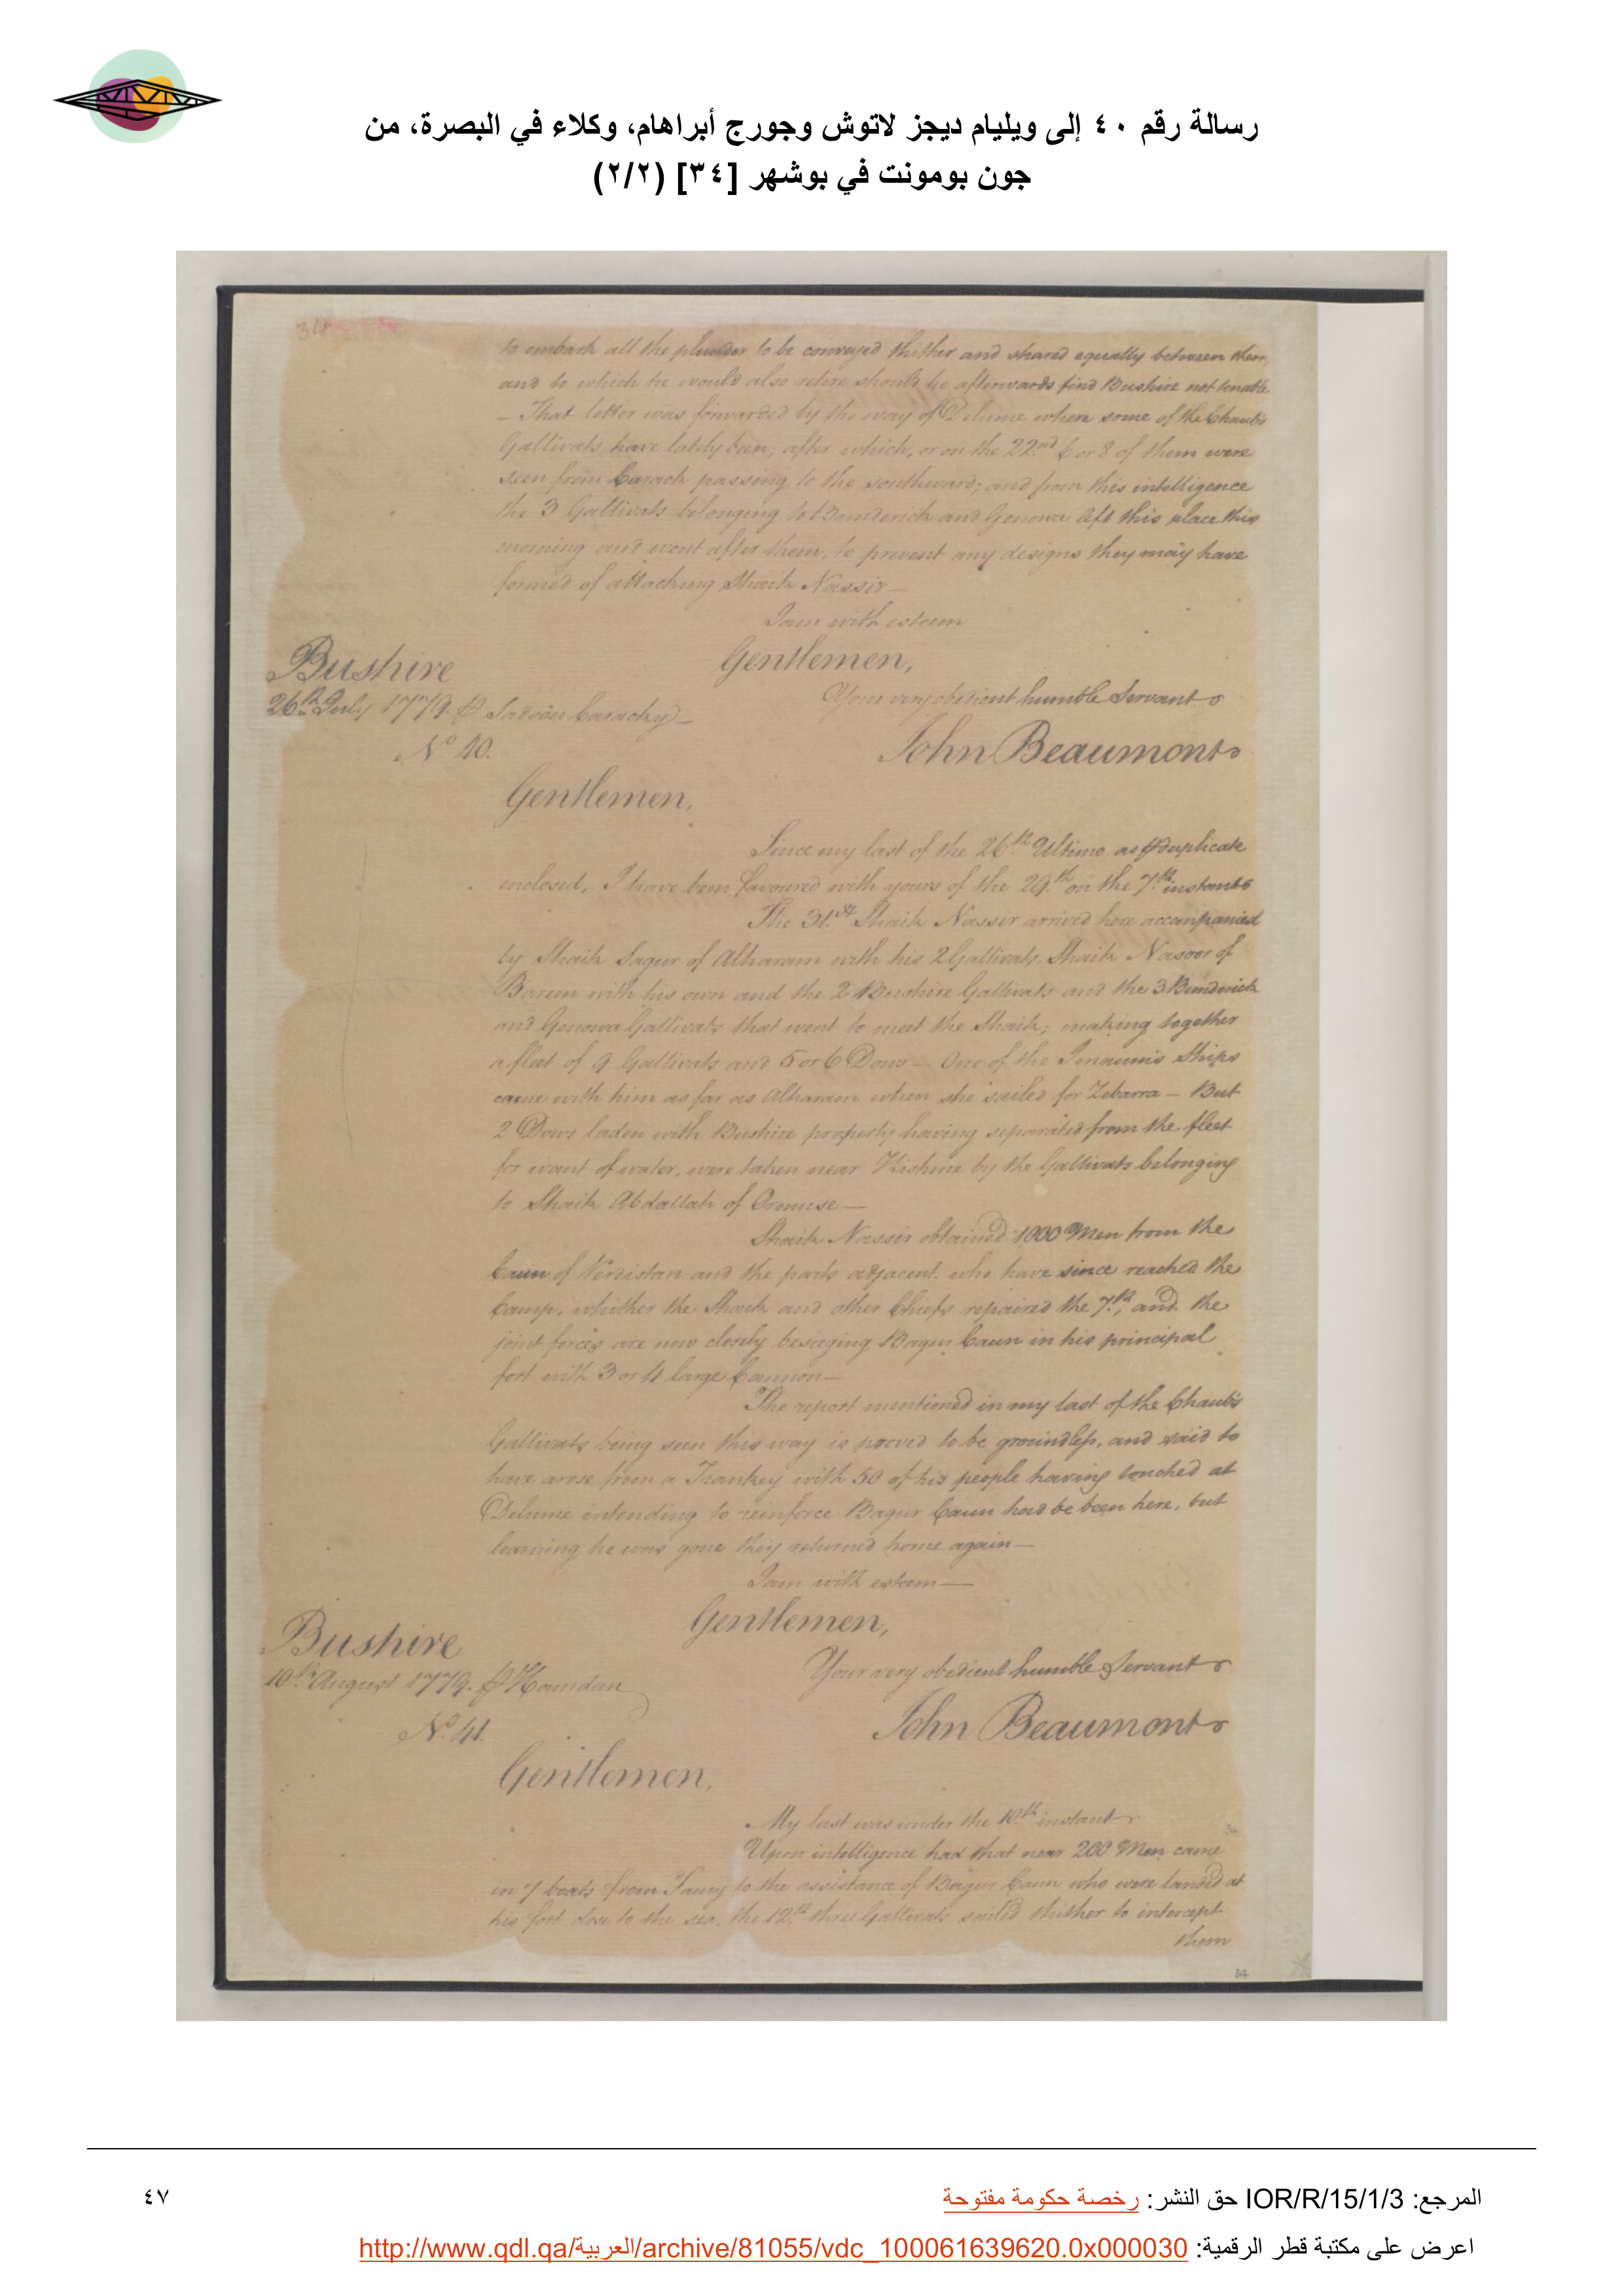 رسالة رقم ٤٠ إلى ويليام ديجز لاتوش وجورج أبراهام، وكلاء في البصرة، من
جون بومونت في بوشهر [٣٤] (٢/٢)
34
to embark all the plunder to be conveyed thither and shared equally between them,
and to which he would also retire should he afterwards find Bushire not tenable
— That letter was forwarded by the way of Delume where some of the Chaub's
Gallivats have lately been; after which, or on the 22nd 6 or 8 of them were
seen from Carack passing to the southward; and from this intelligence
the 3 Gallivats belonging to Bunderick and Genowa left this place this
morning and went after them, to prevent any designs they may have
formed of attacking Shaik Nassir —
I am with esteem
Gentlemen,
Bushire
Your very obedient humble Servant
26th July 1779. ⅌ Sadoon Carachy —
John Beaumont
No 40.
Gentlemen,
Since my last of the 26th Ultimo as ⅌ duplicate
enclosed, I have been favoured with yours of the 29.th on the 7.th instant
The 31.st Shaik Nassir arrived here accompanied
by Shaik Sagur of Alharam with his 2 Gallivats, Shaik Nasoor of
Bareen with his own and the 2 Bushire Gallivats and the 3 Bunderick
and Genowa Gallivats that went to meet the Shaik; making together
a fleet of 9 Gallivats and 5 or 6 Dows — One of the Imaum's Ships
came with him as far as Alharam when she sailed for Zebarra — But
2 Dows laden with Bushire property having separated from the fleet
for want of water, were taken near Kishme by the Gallivats belonging
to Shaik Abdallah of Ormuse —
Shaik Nassir obtained 1000 Men from the
Caun of Verdistan and the parts adjacent, who have since reached the
Camp, whither the Shaik and other Chiefs repaired the 7.th, and the
joint forces are now closely besieging Bagur Caun in his principal
fort with 3 or 4 large Cannon —
The report mentioned in my last of the Chaub's
Gallivats being seen this way is proved to be groundless, and said to
have arose from a Trankey with 50 of his people having touched at
Delume intending to reinforce Bagur Caun had he been here, but
learning he was gone they returned home again —
I am with esteem —
Gentlemen,
Bushire
Your very obedient humble Servant
10th August 1779. ⅌ Hamdan
John Beaumont
No 41.
Gentlemen,
My last was under the 10.th instant
Upon intelligence had that near 200 Men came
in 7 boats from to the assistance of Bagur Caun who were landed at
his fort close to the sea, the 12.th three Gallivats sailed thither to intercept
them
34
المرجع: IOR/R/15/1/3 حق النشر: رخصة حكومة مفتوحة
٤٧
اعرض على مكتبة قطر الرقمية: http://www.qdl.qa/العربية/archive/81055/vdc_100061639620.0x000030